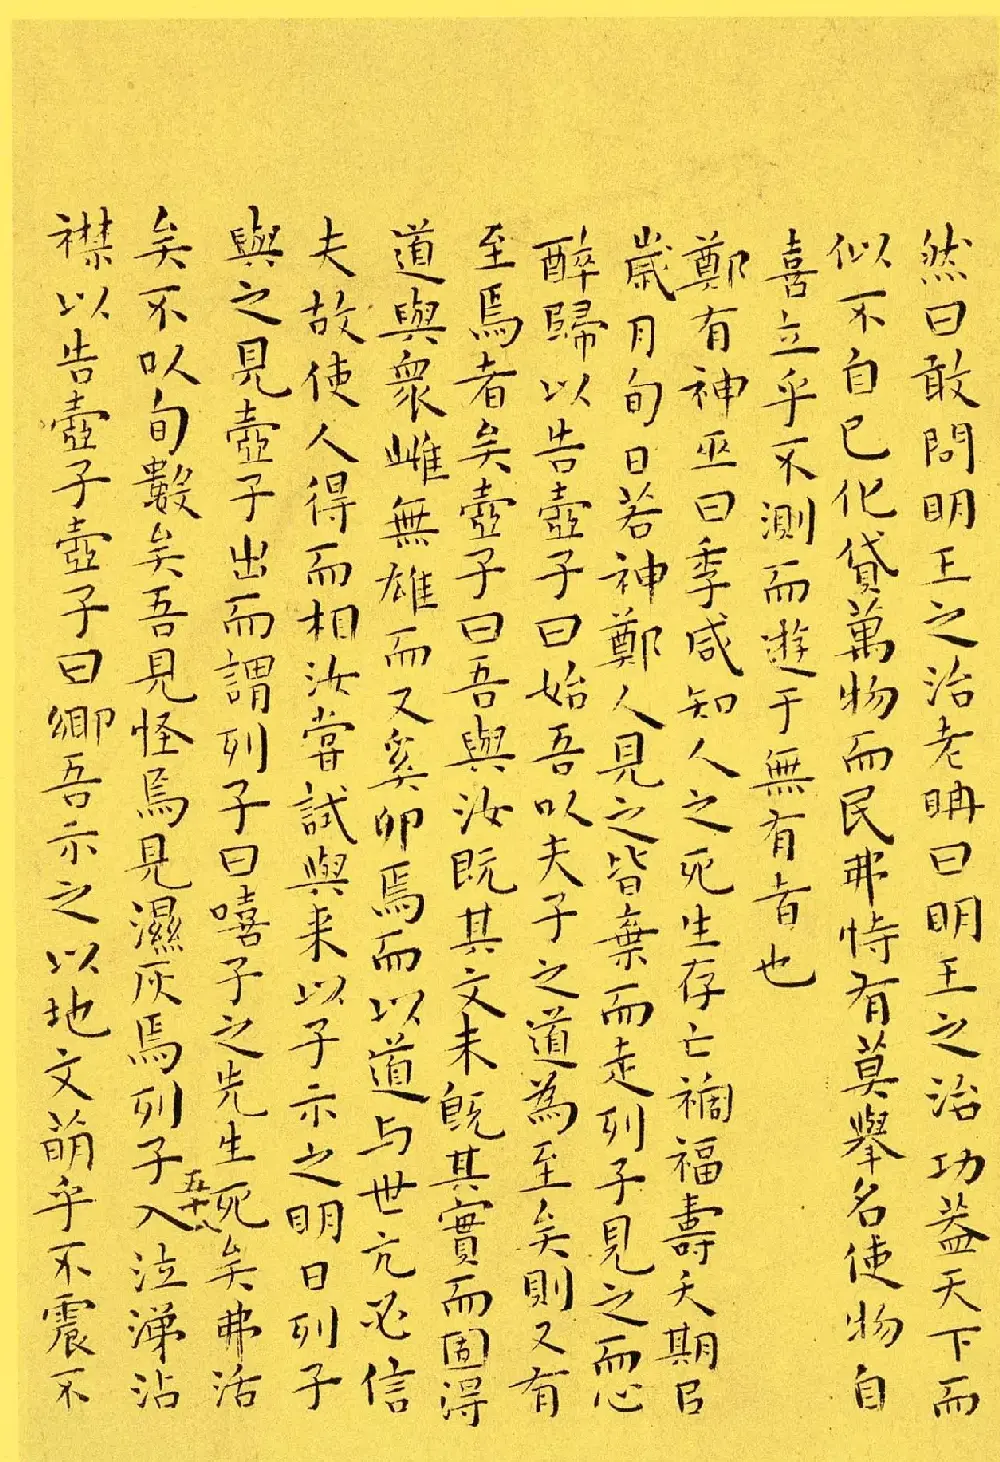 然曰敢問明王之治老聃曰明王之治功蓋天下而
似不自已化貸萬物而民弗恃有莫舉名使物自
喜立乎不測而遊于無有者也
鄭有神巫曰季咸知人之死生存亡禍福壽夭期㠯
歲月旬日若神鄭人見之皆棄而走列子見之而心
醉歸以告壺子曰始吾以夫子之道為至矣則又有
至焉者矣壺子曰吾與汝既其文未既其實而固得
道與衆雌無雄而又奚卵焉而以道与世亢必信
夫故使人得而相汝嘗試與来以子示之明日列子
與之見壺子出而謂列子曰嘻子之先生死矣弗活
五十八
矣不以旬數矣吾見怪焉見濕灰焉列子入泣涕沾
襟以告壺子壺子曰鄉吾示之以地文萌乎不震不